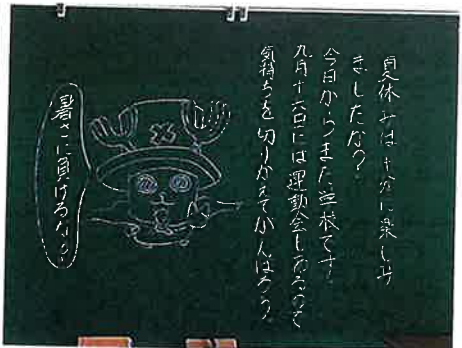 夏休みは十分に楽しみ
ましたか？
今日からまた学校です！
九月十六日には運動会もあるので
気持ちを切りかえてがんばろう。
暑さに負けるな！